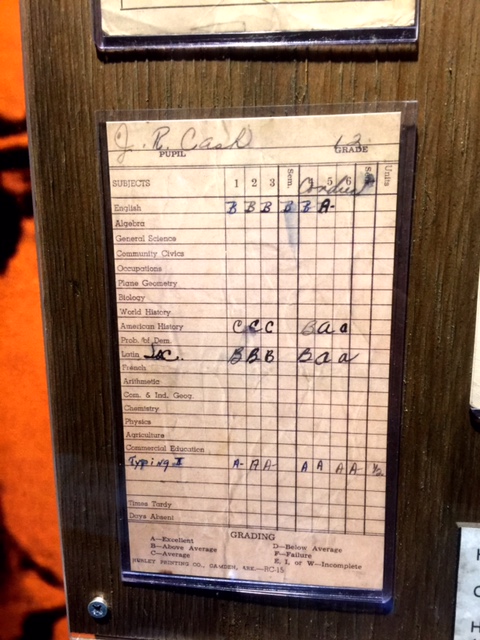 J. R. Cash 12
PUPIL GRADE
SUBJECTS 1 2 3 Sem. 5 6 Units
English B B B B B A-
Algebra
General Science
Community Civics
Occupations
Plane Geometry
Biology
World History
American History C C C B a a
Prob. of Dem.
Latin Soc. B B B B a a
French
Arithmetic
Com. & Ind. Geog.
Chemistry
Physics
Agriculture
Commercial Education
Typing I A- A A- A A A A- 1/2
Times Tardy
Days Absent
GRADING
A—Excellent D—Below Average
B—Above Average F—Failure
C—Average E, I, or W—Incomplete
HENLEY PRINTING CO., CAMDEN, ARK.—RC-15
H
C
H